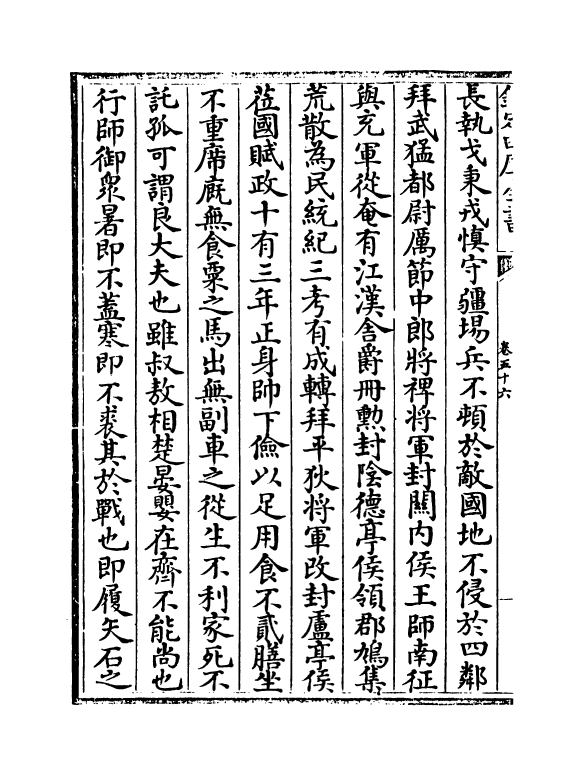 長執戈秉戎慎守疆埸兵不頓於敵國地不侵於四鄰
拜武猛都尉厲節中郎將裨將軍封關内侯王師南征
與充軍從奄有江漢舍爵冊勲封隂德亭侯領郡鳩集
荒散為民統紀三考有成轉拜平狄將軍改封盧亭侯
蒞國賦政十有三年正身帥下儉以足用食不貳膳坐
不重席廐無食粟之馬出無副車之從生不利家死不
託孤可謂良大夫也雖叔敖相楚晏嬰在齊不能尚也
行師御衆暑即不蓋寒即不裘其於戰也即履矢石之
卷五十六